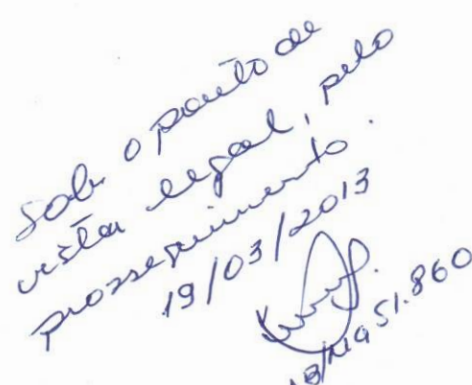 Sob o ponto de
vista legal, pelo
prosseguimento.
19/03/2013
51.860